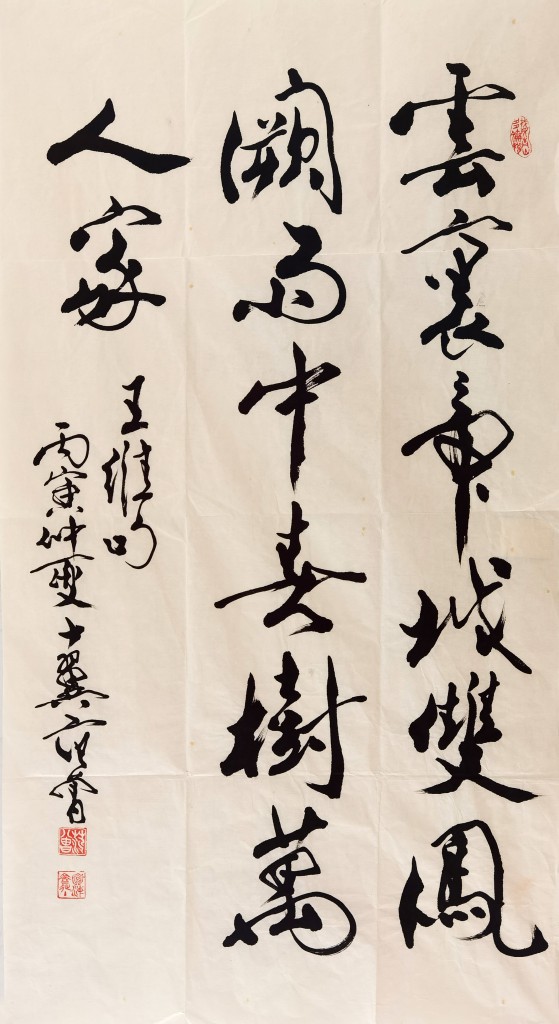 雲裏帝城雙鳳
闕雨中春樹萬
人家
王維句
丙寅仲夏十翼范曾